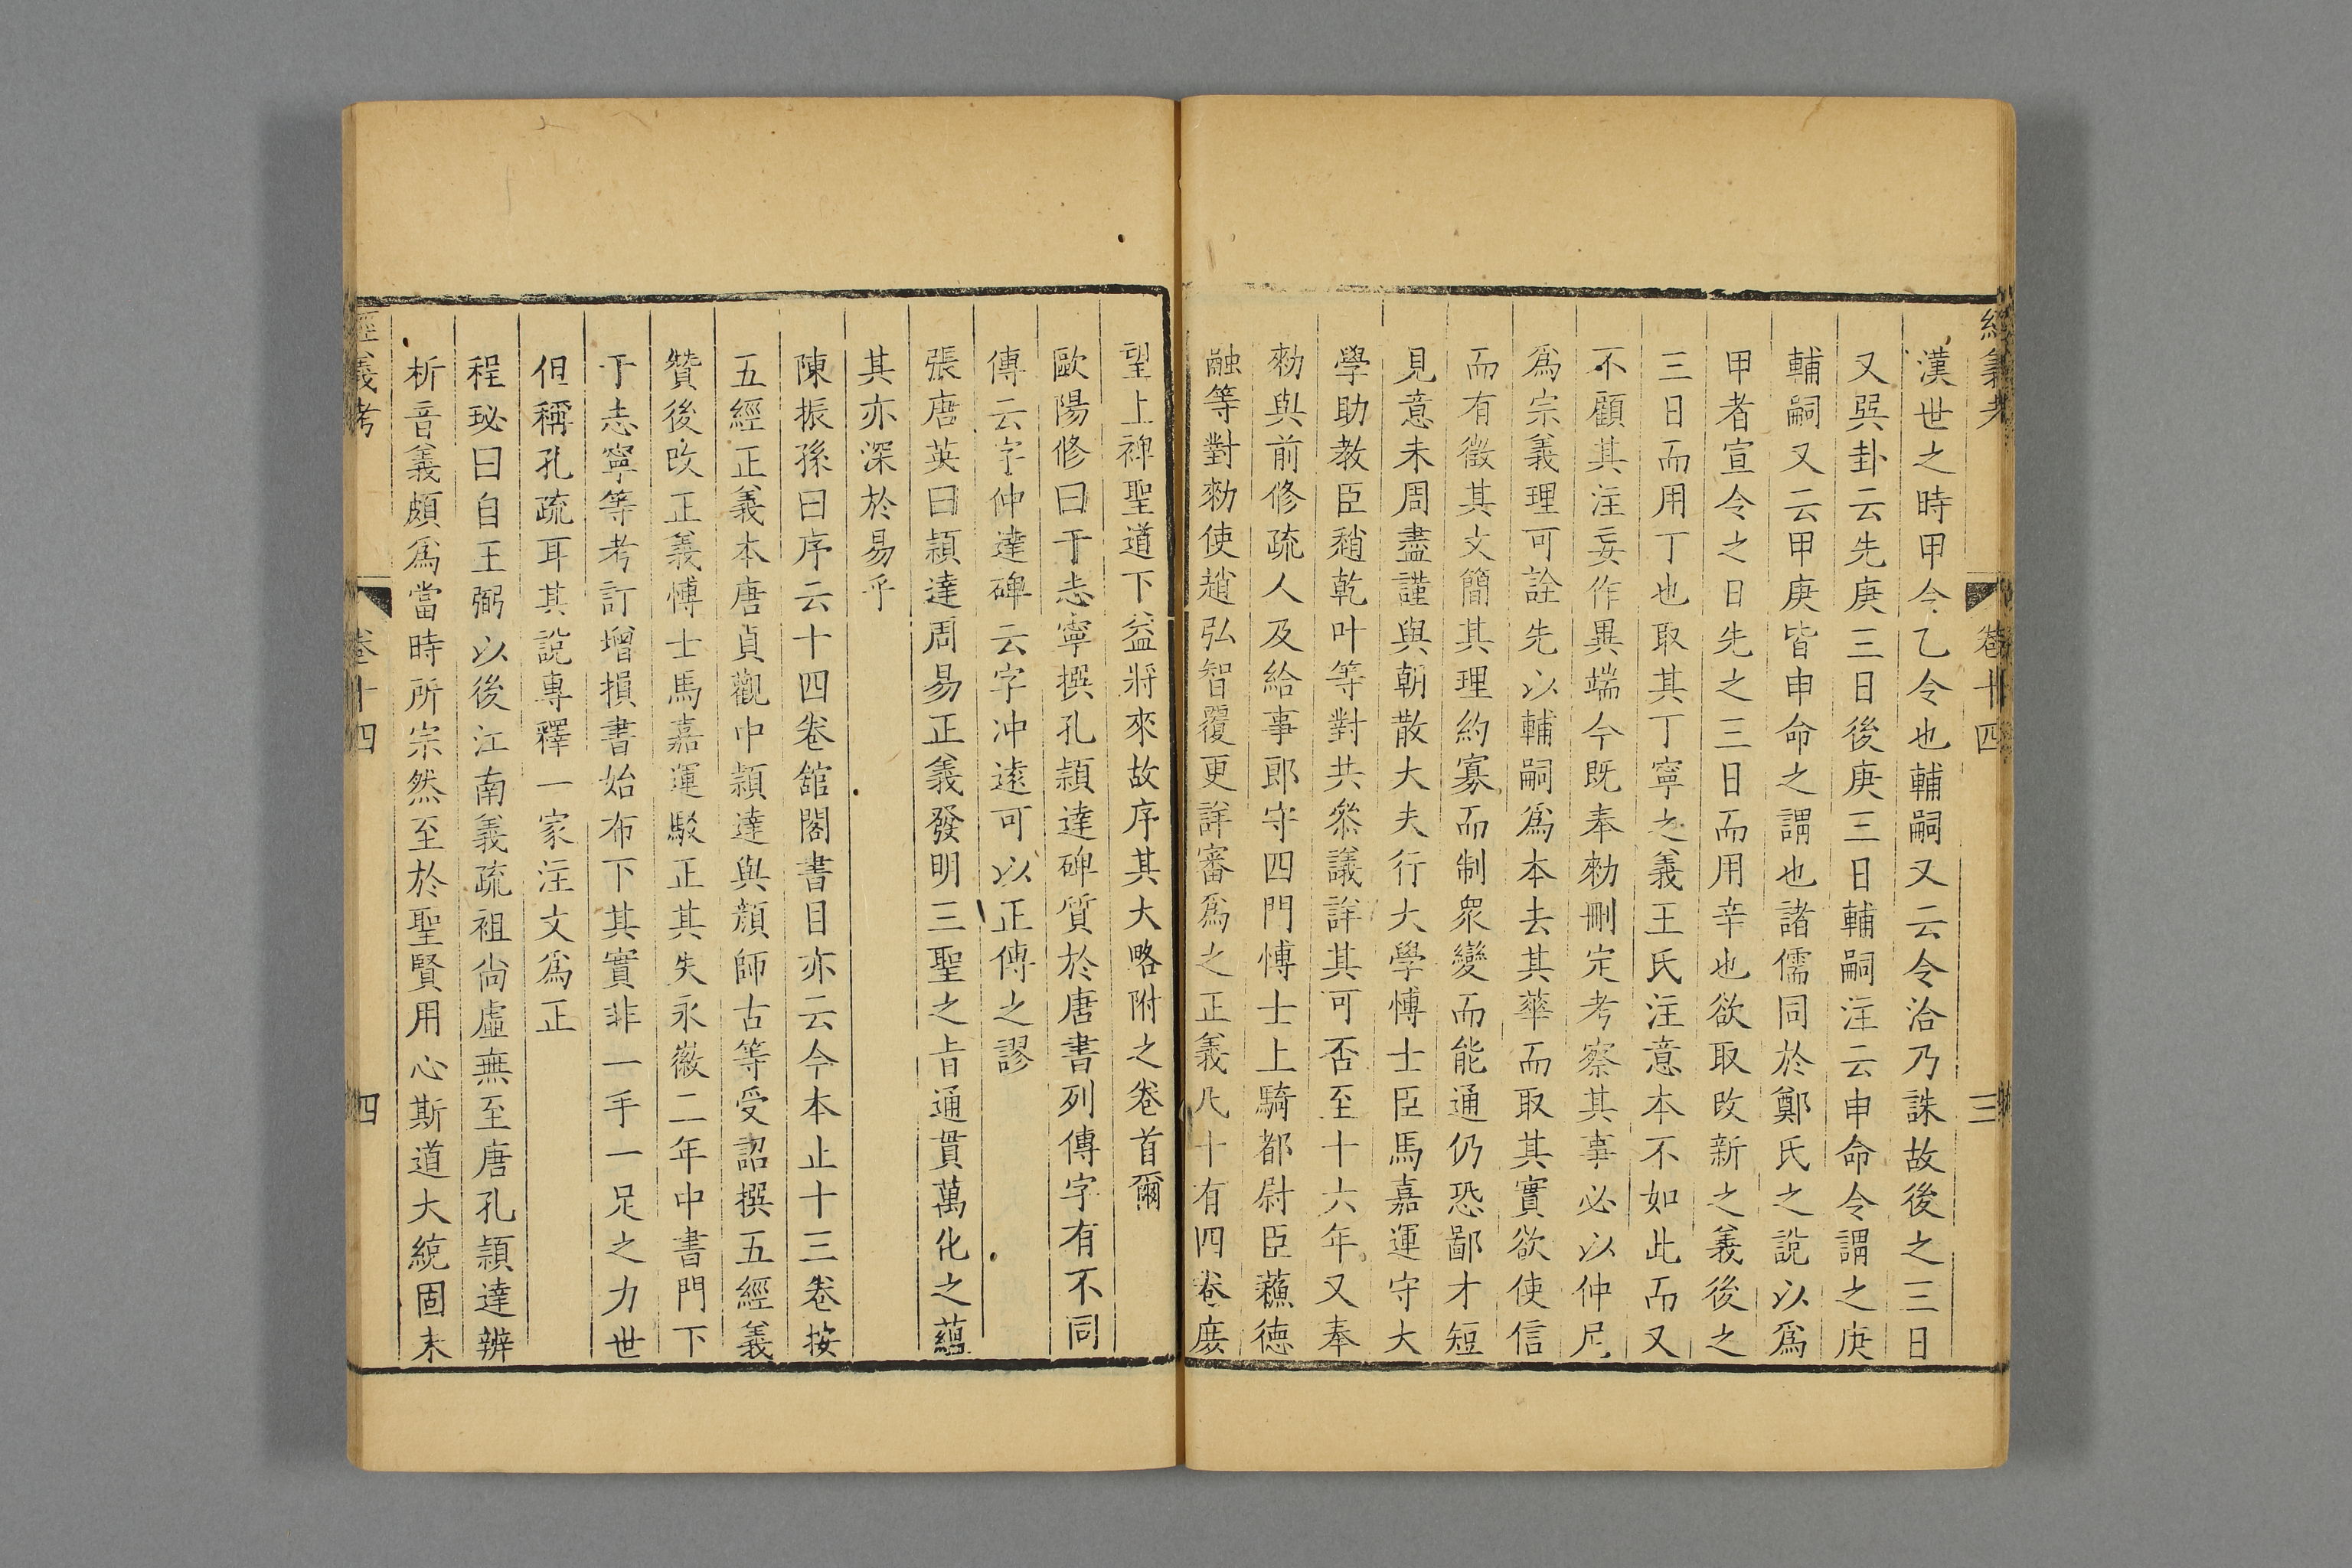 經義考 卷十四 三
漢世之時甲令乙令也輔嗣又云令洽乃誅故後之三日
又巽卦云先庚三日後庚三日輔嗣注云申命令謂之庚
輔嗣又云甲庚皆申命之謂也諸儒同於鄭氏之說以爲
甲者宣令之日先之三日而用辛也欲取改新之義後之
三日而用丁也取其丁寧之義王氏注意本不如此而又
不顧其注妄作異端今既奉勑刪定考察其事必以仲尼
爲宗義理可詮先以輔嗣爲本去其華而取其實欲使信
而有徵其文簡其理約寡而制衆變而能通仍恐鄙才短
見意未周盡謹與朝散大夫行大學博士臣馬嘉運守大
學助教臣趙乾叶等對共叅議詳其可否至十六年又奉
勑與前修疏人及給事郎守四門博士上騎都尉臣蘓德
融等對勑使趙弘智覆更詳審爲之正義凡十有四卷庻
望上裨聖道下益將來故序其大略附之卷首爾
歐陽修曰于志寧撰孔穎達碑質於唐書列傳字有不同
傳云字仲達碑云字冲遠可以正傳之謬
張唐英曰穎達周易正義發明三聖之旨通貫萬化之蘊
其亦深於易乎
陳振孫曰序云十四卷舘閣書目亦云今本止十三卷按
五經正義本唐貞觀中穎達與顏師古等受詔撰五經義
贊後改正義博士馬嘉運駮正其失永徽二年中書門下
于志寧等考訂增損書始布下其實非一手一足之力世
但稱孔疏耳其說專釋一家注文爲正
程珌曰自王弼以後江南義疏祖尚虛無至唐孔穎達辨
析音義頗爲當時所宗然至於聖賢用心斯道大統固未
經義考 卷十四 四